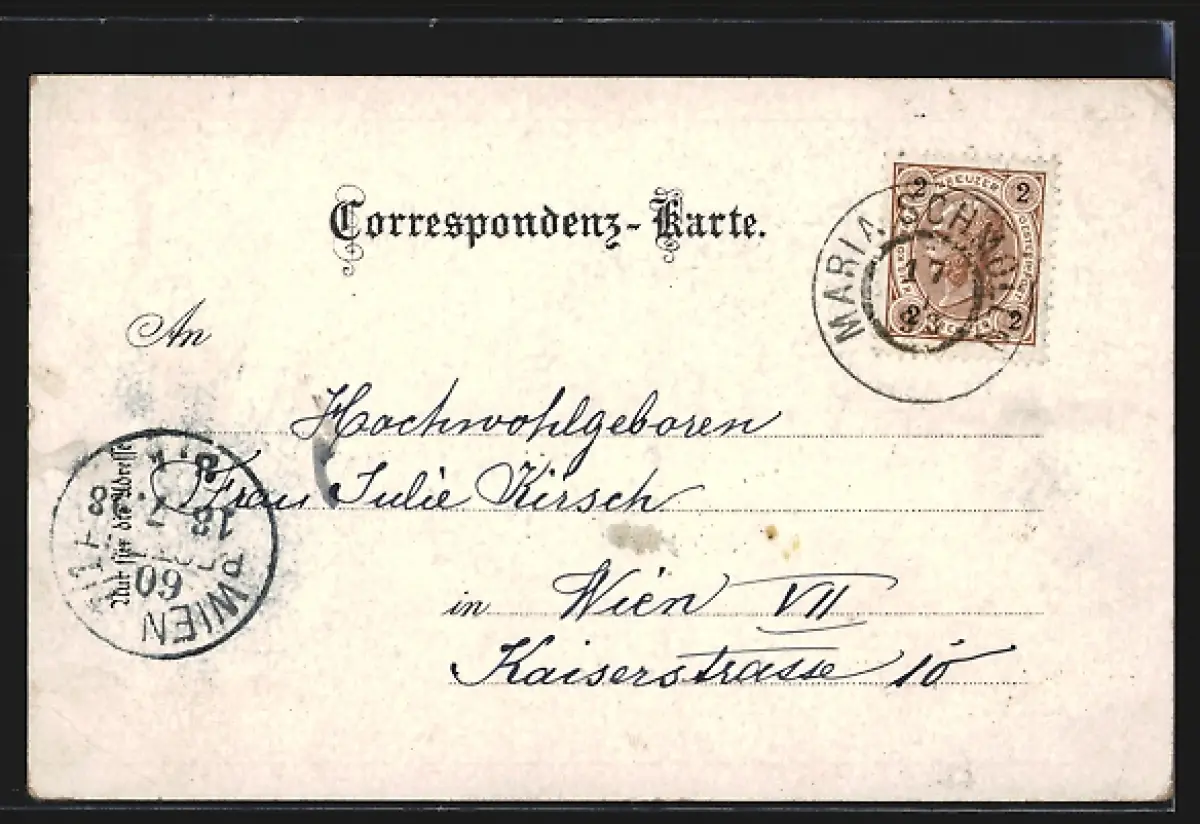 Correspondenz-Karte.
2 KREUZER 2
2 2
MARIA SCHMOLN
17
An
Hochwohlgeboren
Frau Julie Kirsch
in Wien VII
Kaiserstrasse 10
Nur für die Adresse
WIEN
60
18
8